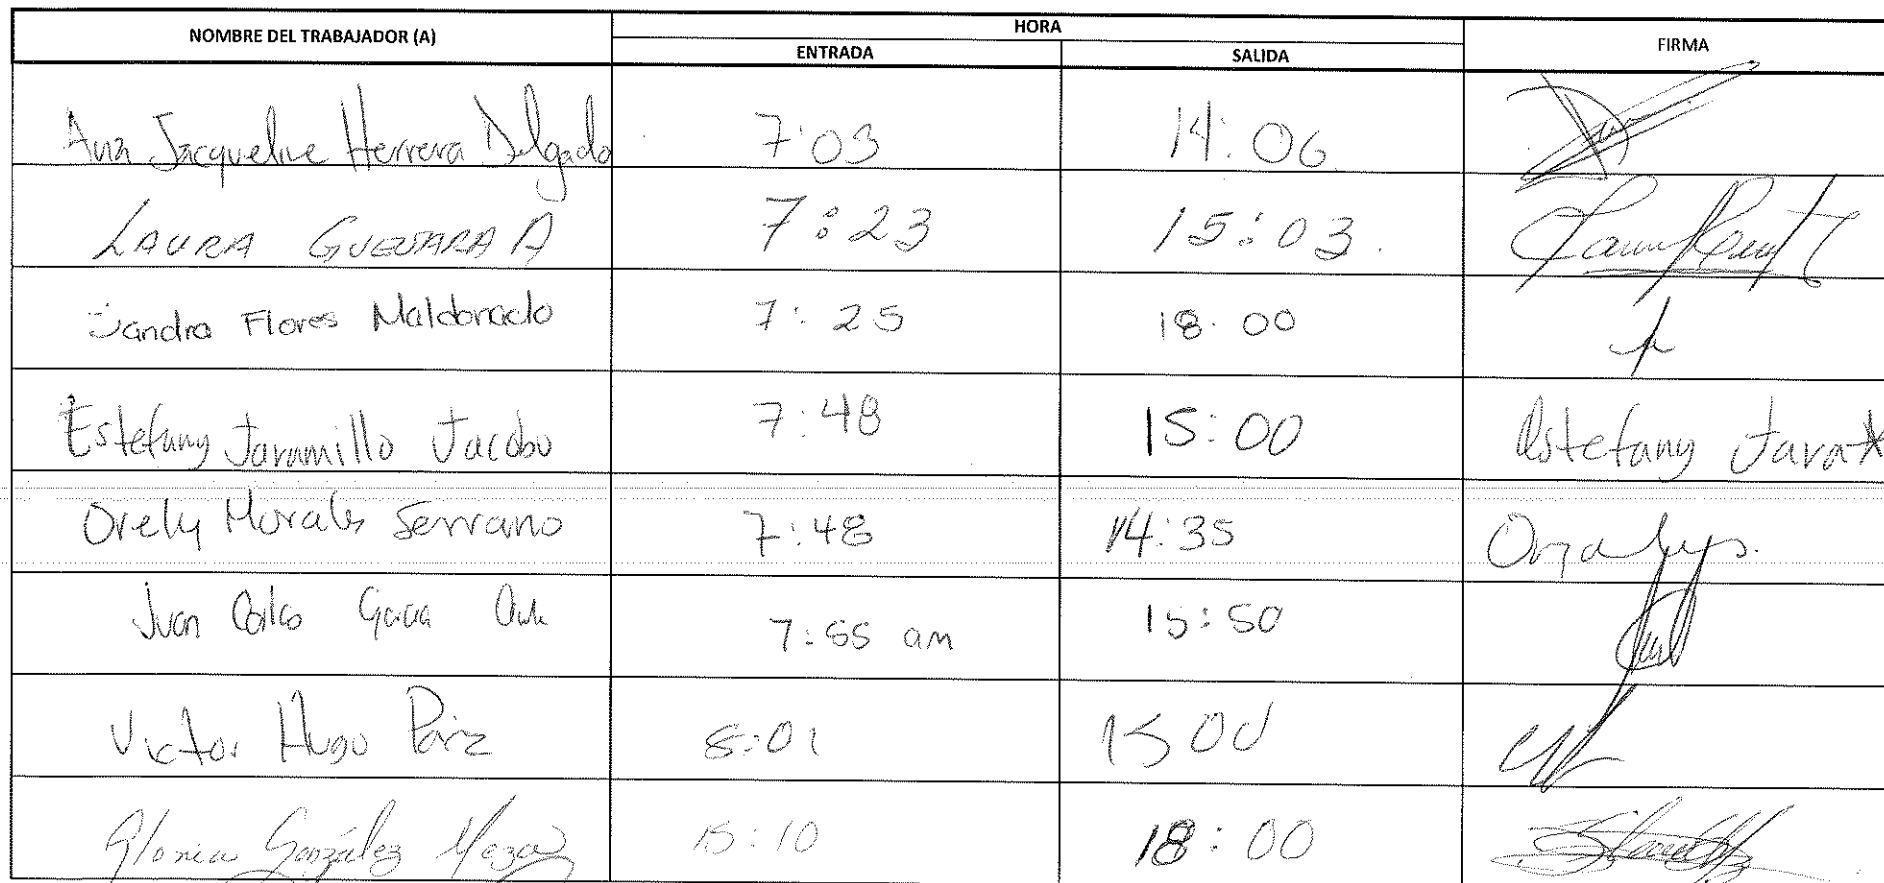 NOMBRE DEL TRABAJADOR (A) HORA FIRMA
ENTRADA SALIDA
Ana Jacqueline Herrera Delgado 7:03 14:06
LAURA GUEVARA A 7:23 15:03.
Sandra Flores Maldonado 7:25 18:00
Estefany Jaramillo Jacobo 7:48 15:00 Estefany Jara
Orely Morales Serrano 7:48 14:35
Juan Carlos 7:55 am 15:50
Victor Hugo 8:01 15 00
Gloria González Meza 15:10 18:00